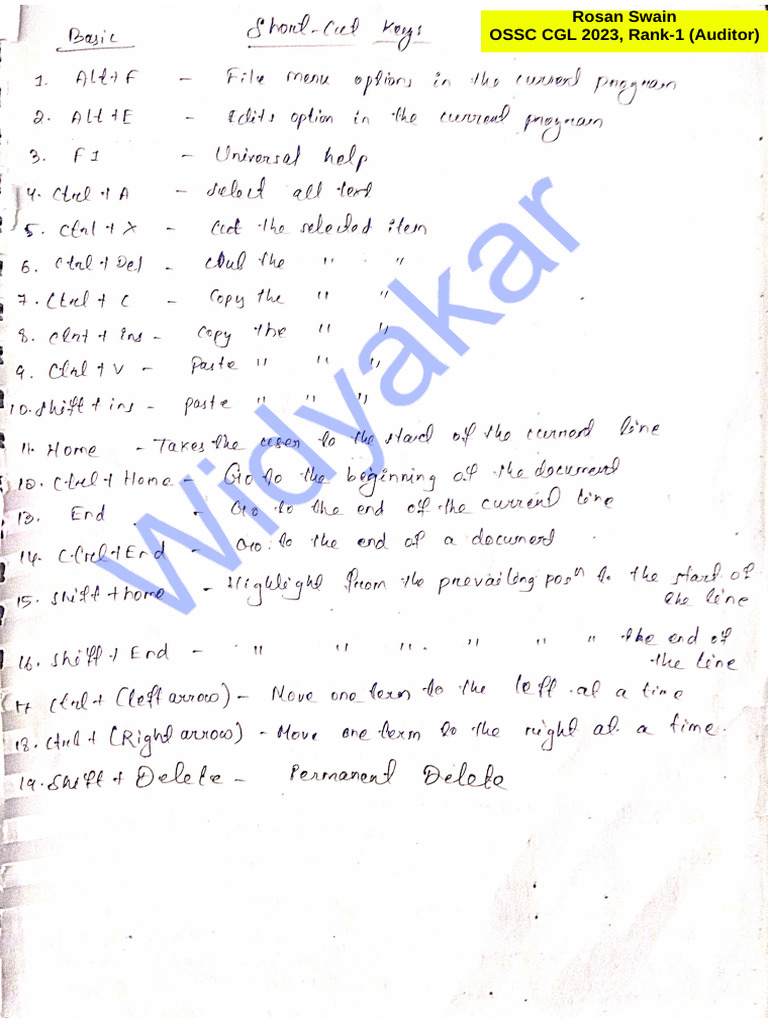 Rosan Swain
OSSC CGL 2023, Rank-1 (Auditor)
Basic Short-Cut Keys
1. Alt+F - File menu options in the current program
2. Alt+E - Edits option in the current program
3. F1 - Universal help
4. Ctrl+A - Select all text
5. Ctrl+X - Cut the selected item
6. Ctrl+Del - Cut the " "
7. Ctrl+C - Copy the " "
8. Ctrl+ins - Copy the " "
9. Ctrl+V - Paste " " "
10. Shift+ins - paste " " "
11. Home - Takes the user to the start of the current line
12. Ctrl+Home - Go to the beginning of the document
13. End - Go to the end of the current line
14. Ctrl+End - Go to the end of a document
15. Shift+home - Highlight from the prevailing posⁿ to the start of
the line
16. Shift+End - " " " " " " the end of
the line
17 Ctrl+(left arrow) - Move one term to the left at a time
18. Ctrl+(Right arrow) - Move one term to the right at a time.
19. Shift+Delete - Permanent Delete
Widyakar